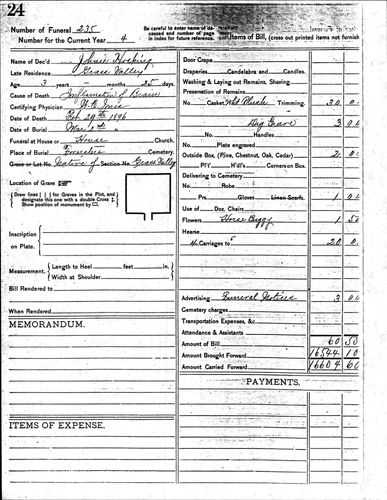 24
Number of Funeral 235
Number for the Current Year 4
Be carefull to enter name of deceased and number of page in index for future reference.
Items of Bill, (cross out printed items not furnish
Name of Dec'd Hosking
Late Residence Grass Valley
Age 3 years - months 25 days
Cause of Death Inflamation of Brain
Certifying Physician
Date of Death Feb 29th 1896
Date of Burial
Funeral at House or House Church
Place of Burial Cemetery.
Grave or Lot No. Native of Section No. Grass Valley
Location of Grave
Draw lines for Graves in the Plot, and designate this one with a double Cross
Show position of monument by
Inscription on Plate.
Measurement, Length to Heel feet in.
Width at Shoulder
Bill Rendered to
When Rendered
MEMORANDUM.
ITEMS OF EXPENSE.
Door Crape
Draperies Candelabra and Candles.
Washing & Laying out Remains, Shaving
Preservation of Remains
No. Casket Wht Plush Trimming. 30 00
Dig Grave 3 00
No. Handles
Plate engraved
Outside Box, (Pine, Chestnut, Oak, Cedar) 2 00
P'l'Y H'dl's Corners on Box.
Delivering to Cemetery
No. Robe
Prs. Gloves Linen Scarfs. 1 00
Use of Doz. Chairs
Flowers Horse Buggy 1 50
Hearse
4 Carriages to 20 0
Advertising Funeral Notices 3 00
Cemetery charges
Transportation Expenses, &c
Attendance & Assistants
Amount of Bill 60 50
Amount Brought Forward 16544 10
Amount Carried Forward 16604 60
PAYMENTS.